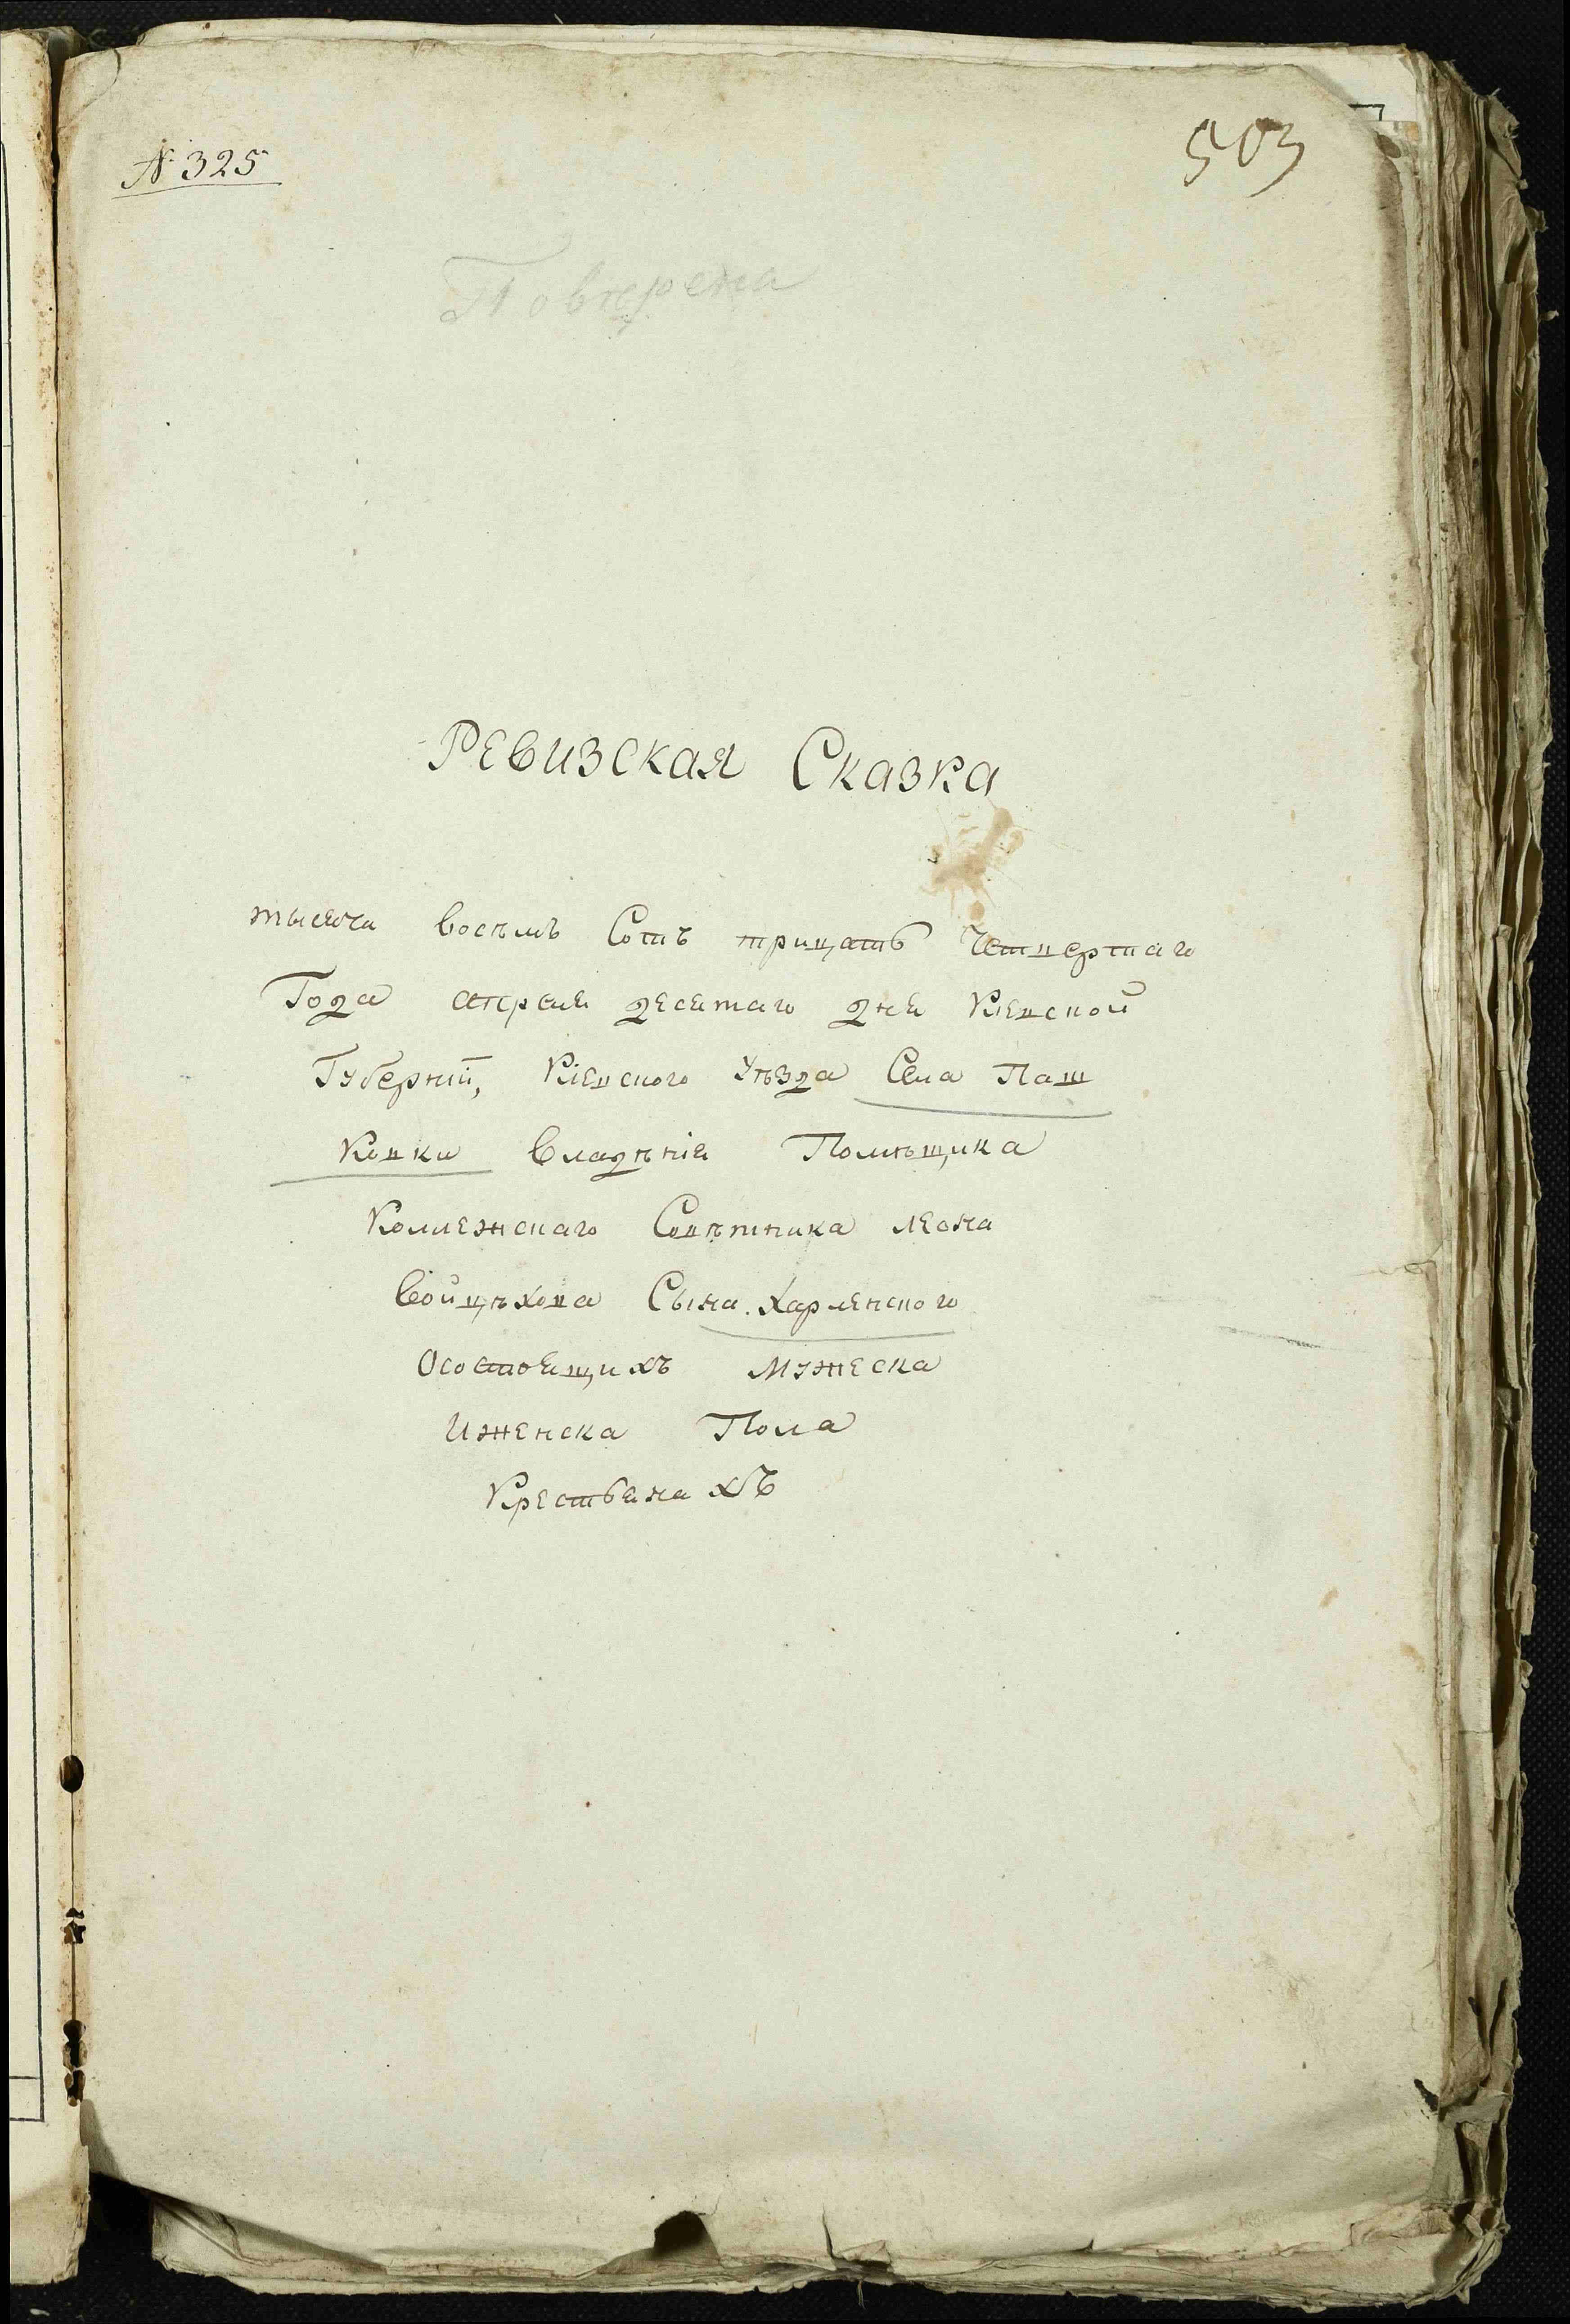 № 325
503
Поверена
РЕВИЗСКАЯ Сказка
тысяча восѣмъ Сотъ трицать Четвертаго
Года апреля десятаго дня Кіевской
Губерніи, Кіевского Уѣзда Села Паш
ковки владѣнія Помѣщика
Коллежскаго Совѣтника леона
войцѣхова Сына Харленского
Осостоящихъ Мужеска
Иженска Пола
Крестьянахъ